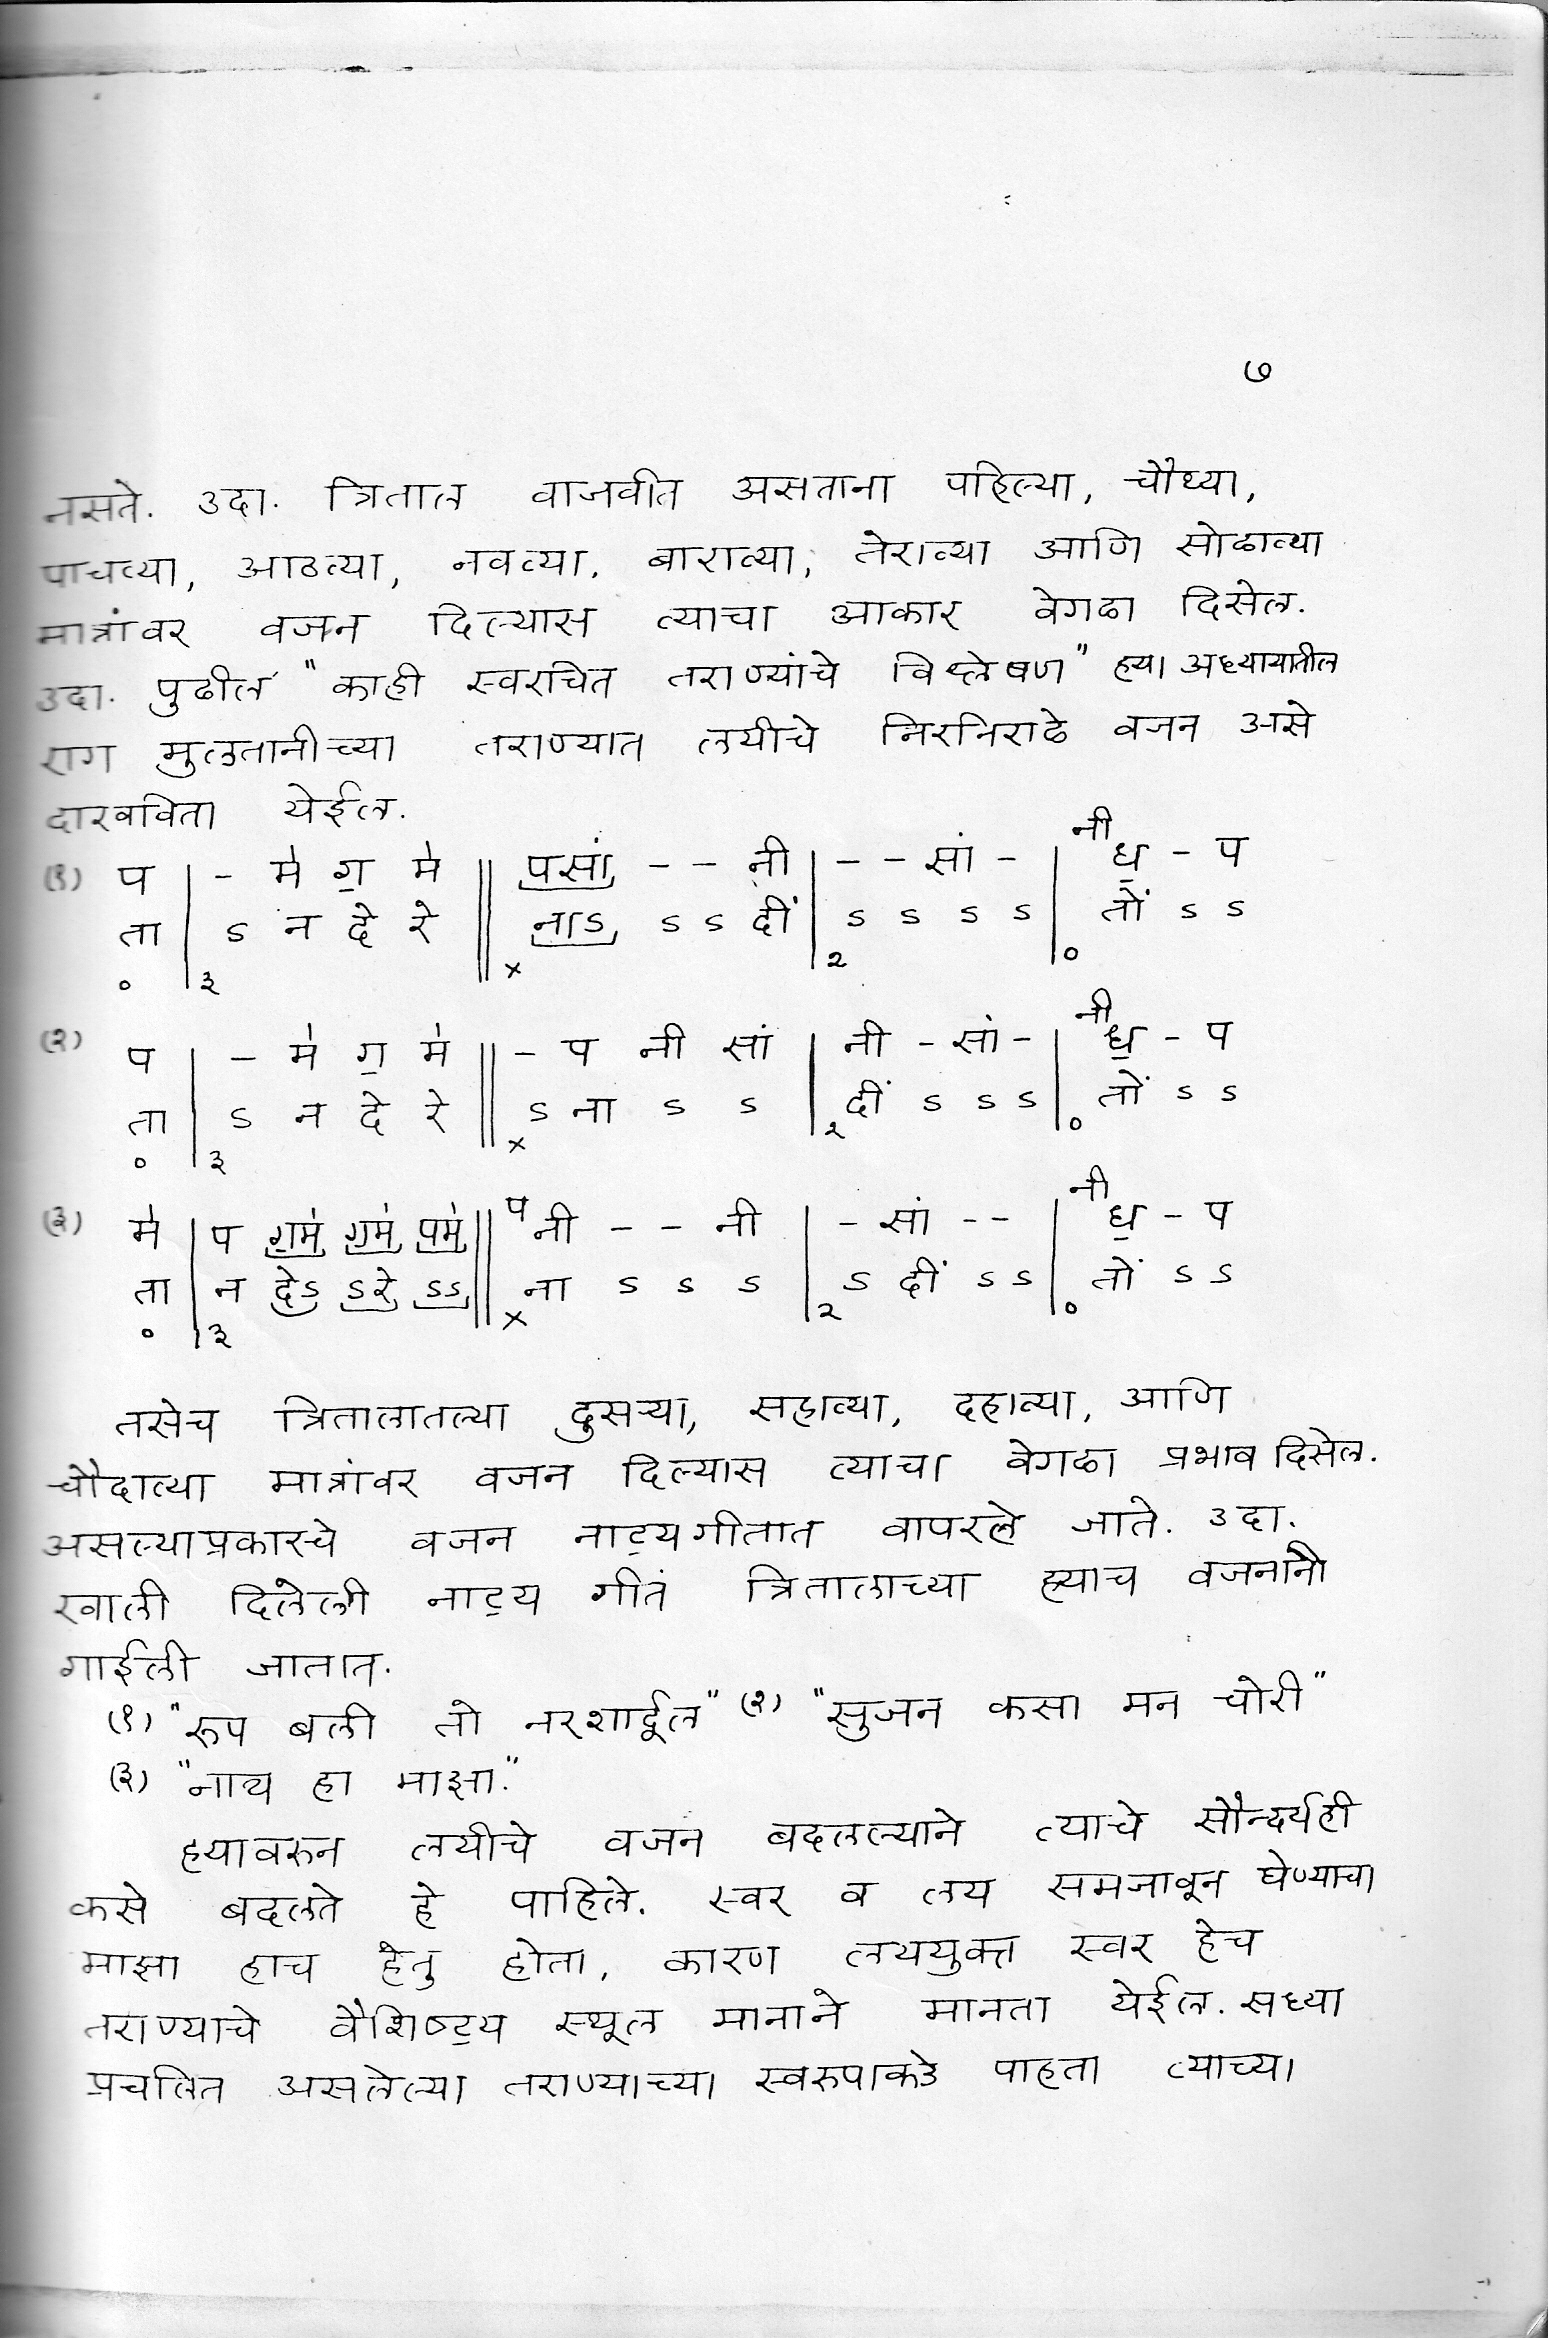 ७
नसते. उदा. त्रिताल वाजवीत असताना पहिल्या, चौथ्या,
पाचव्या, आठव्या, नवव्या. बाराव्या, तेराव्या आणि सोळाव्या
मात्रांवर वजन दिल्यास त्याचा आकार वेगळा दिसेल.
उदा. पुढील "काही स्वरचित तराण्यांचे विश्लेषण" ह्या अध्यायातील
राग मुलतानीच्या तराण्यात लयीचे निरनिराळे वजन असे
दाखविता येईल.
(१) प | - म॑ ग॒ म॑ || पसां - - नी | - - सां - | नीध॒ - प
ता | ऽ न दे रे || नाऽ ऽ ऽ दीं | ऽ ऽ ऽ ऽ | तों ऽ ऽ
० ३ x २ ०
(२) प | - म॑ ग॒ म॑ || - प नी सां | नी - सां - | नीध॒ - प
ता | ऽ न दे रे || ऽ ना ऽ ऽ | दीं ऽ ऽ ऽ | तों ऽ ऽ
० ३ x २ ०
(३) म॑ | प ग॒म॑ ग॒म॑ पम॑ || पनी - - नी | - सां - - | नीध॒ - प
ता | न देऽ ऽरे ऽऽ || ना ऽ ऽ ऽ | ऽ दीं ऽ ऽ | तों ऽ ऽ
० ३ x २ ०
तसेच त्रितालातल्या दुसऱ्या, सहाव्या, दहाव्या, आणि
चौदाव्या मात्रांवर वजन दिल्यास त्याचा वेगळा प्रभाव दिसेल.
असल्याप्रकारचे वजन नाट्यगीतात वापरले जाते. उदा.
खाली दिलेली नाट्य गीतं त्रितालाच्या ह्याच वजनांनी
गाईली जातात.
(१) "रूप बली तो नरशार्दूल" (२) "सुजन कसा मन चोरी"
(३) "नाथ हा माझा."
ह्यावरुन लयीचे वजन बदलल्याने त्याचे सौन्दर्यही
कसे बदलते हे पाहिले. स्वर व लय समजावून घेण्याचा
माझा हाच हेतु होता, कारण लययुक्त स्वर हेच
तराण्याचे वैशिष्ट्य स्थूल मानाने मानता येईल. सध्या
प्रचलित असलेल्या तराण्याच्या स्वरुपाकडे पाहता त्याच्या